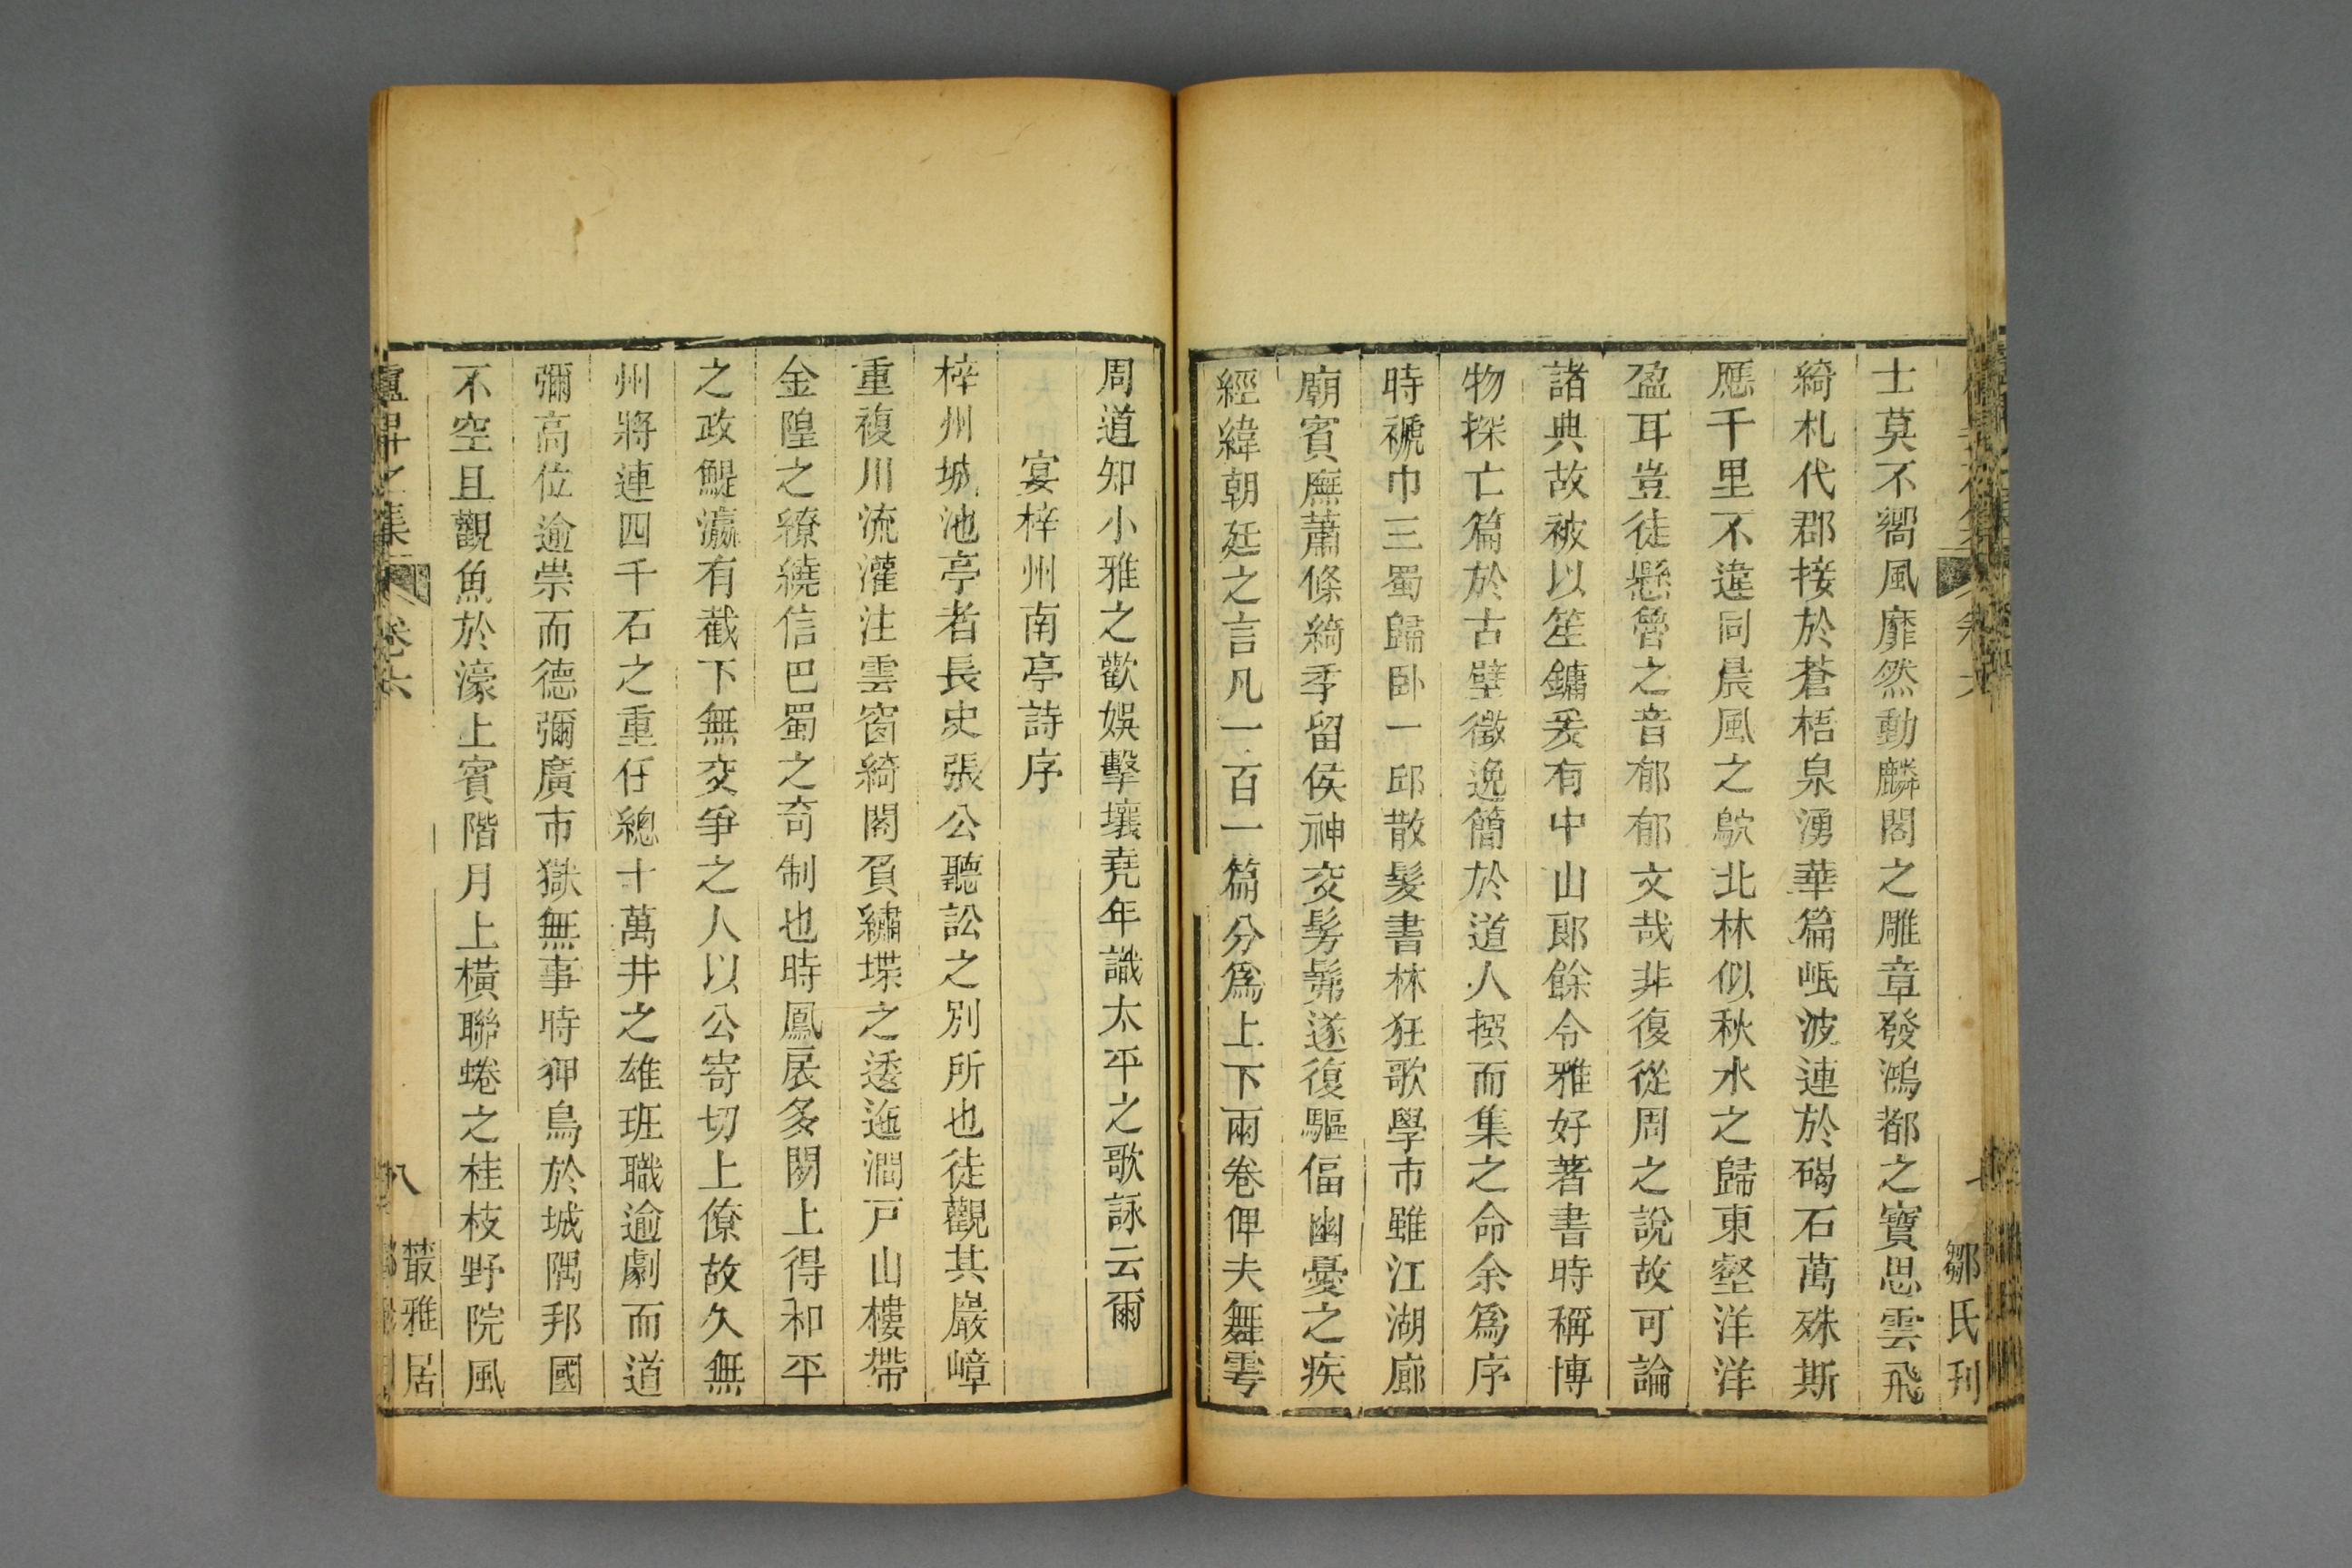 士莫不嚮風靡然動麟閣之雕章發鴻都之寶思雲飛
綺札代郡接於蒼梧泉湧華篇岷波連於碣石萬殊斯
應千里不違同晨風之鴥北林似秋水之歸東壑洋洋
盈耳豈徒懸魯之音郁郁文哉非復從周之說故可論
諸典故被以笙鏞爰有中山郎餘令雅好著書時稱博
物探亡篇於古壁徵逸簡於道人撰而集之命余爲序
時褫巾三蜀歸卧一邱散髮書林狂歌學市雖江湖廊
廟賓廡蕭條綺季留侯神交髣髴遂復驅偪幽憂之疾
經緯朝廷之言凡一百一篇分爲上下兩卷俾夫舞雩
周道知小雅之歡娛擊壤堯年識太平之歌詠云爾
宴梓州南亭詩序
梓州城池亭者長史張公聽訟之別所也徒觀其巖嶂
重複川流灌注雲窗綺閣負繡堞之逶迤澗戸山樓帶
金隍之繚繞信巴蜀之奇制也時鳳扆多閒上得和平
之政鯷瀛有截下無交爭之人以公寄切上僚故久無
州將連四千石之重任總十萬井之雄班職逾劇而道
彌高位逾崇而德彌廣市獄無事時狎鳥於城隅邦國
不空且觀魚於濠上賓階月上橫聯蜷之桂枝野院風
盧昇之集 卷六 八 叢雅居
鄒氏刊